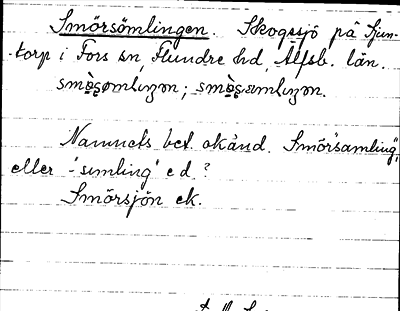 Smörsömlingen. Skogssjö på Sjun-
-torp i Fors sn, Flundre hd, Älfsb. län.
Namnets bet. okänd. Smör"samling",
eller '-sumling' e d.?
Smörsjön ek.